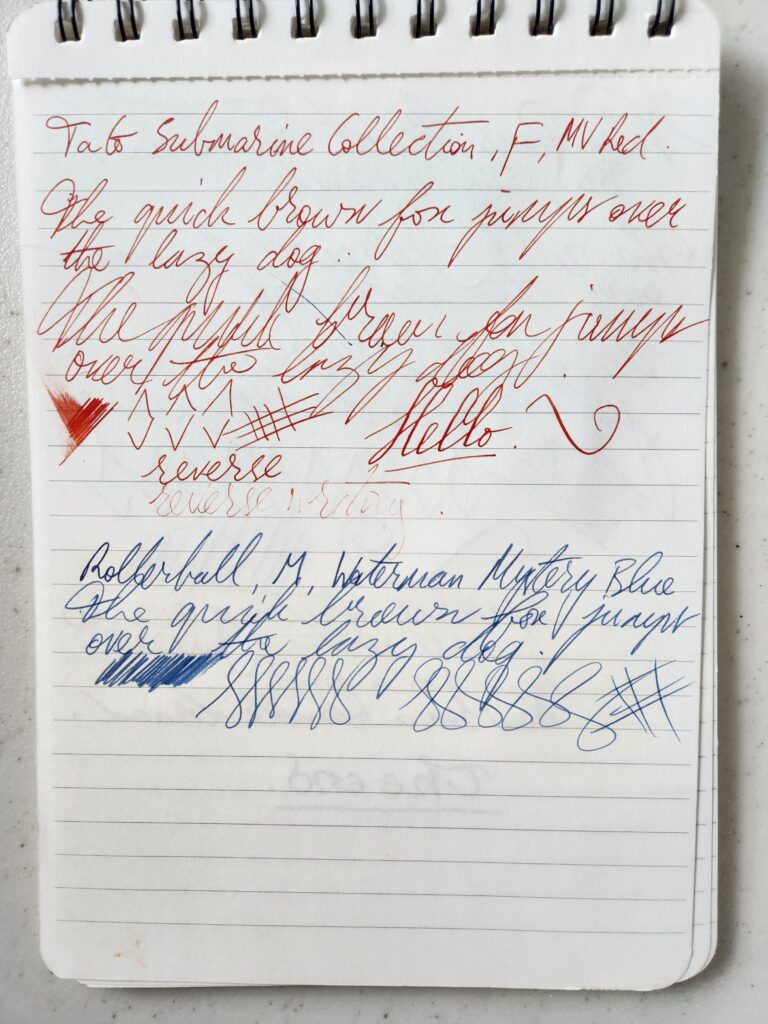 Submarine Collection, F, MV Red.
The quick brown fox jumps over
the lazy dog.
The quick brown fox jumps
over the lazy dog.
Hello.
reverse
reverse writing.
Rollerball, M, Waterman Mystery Blue
The quick brown fox jumps
over the lazy dog.
The end